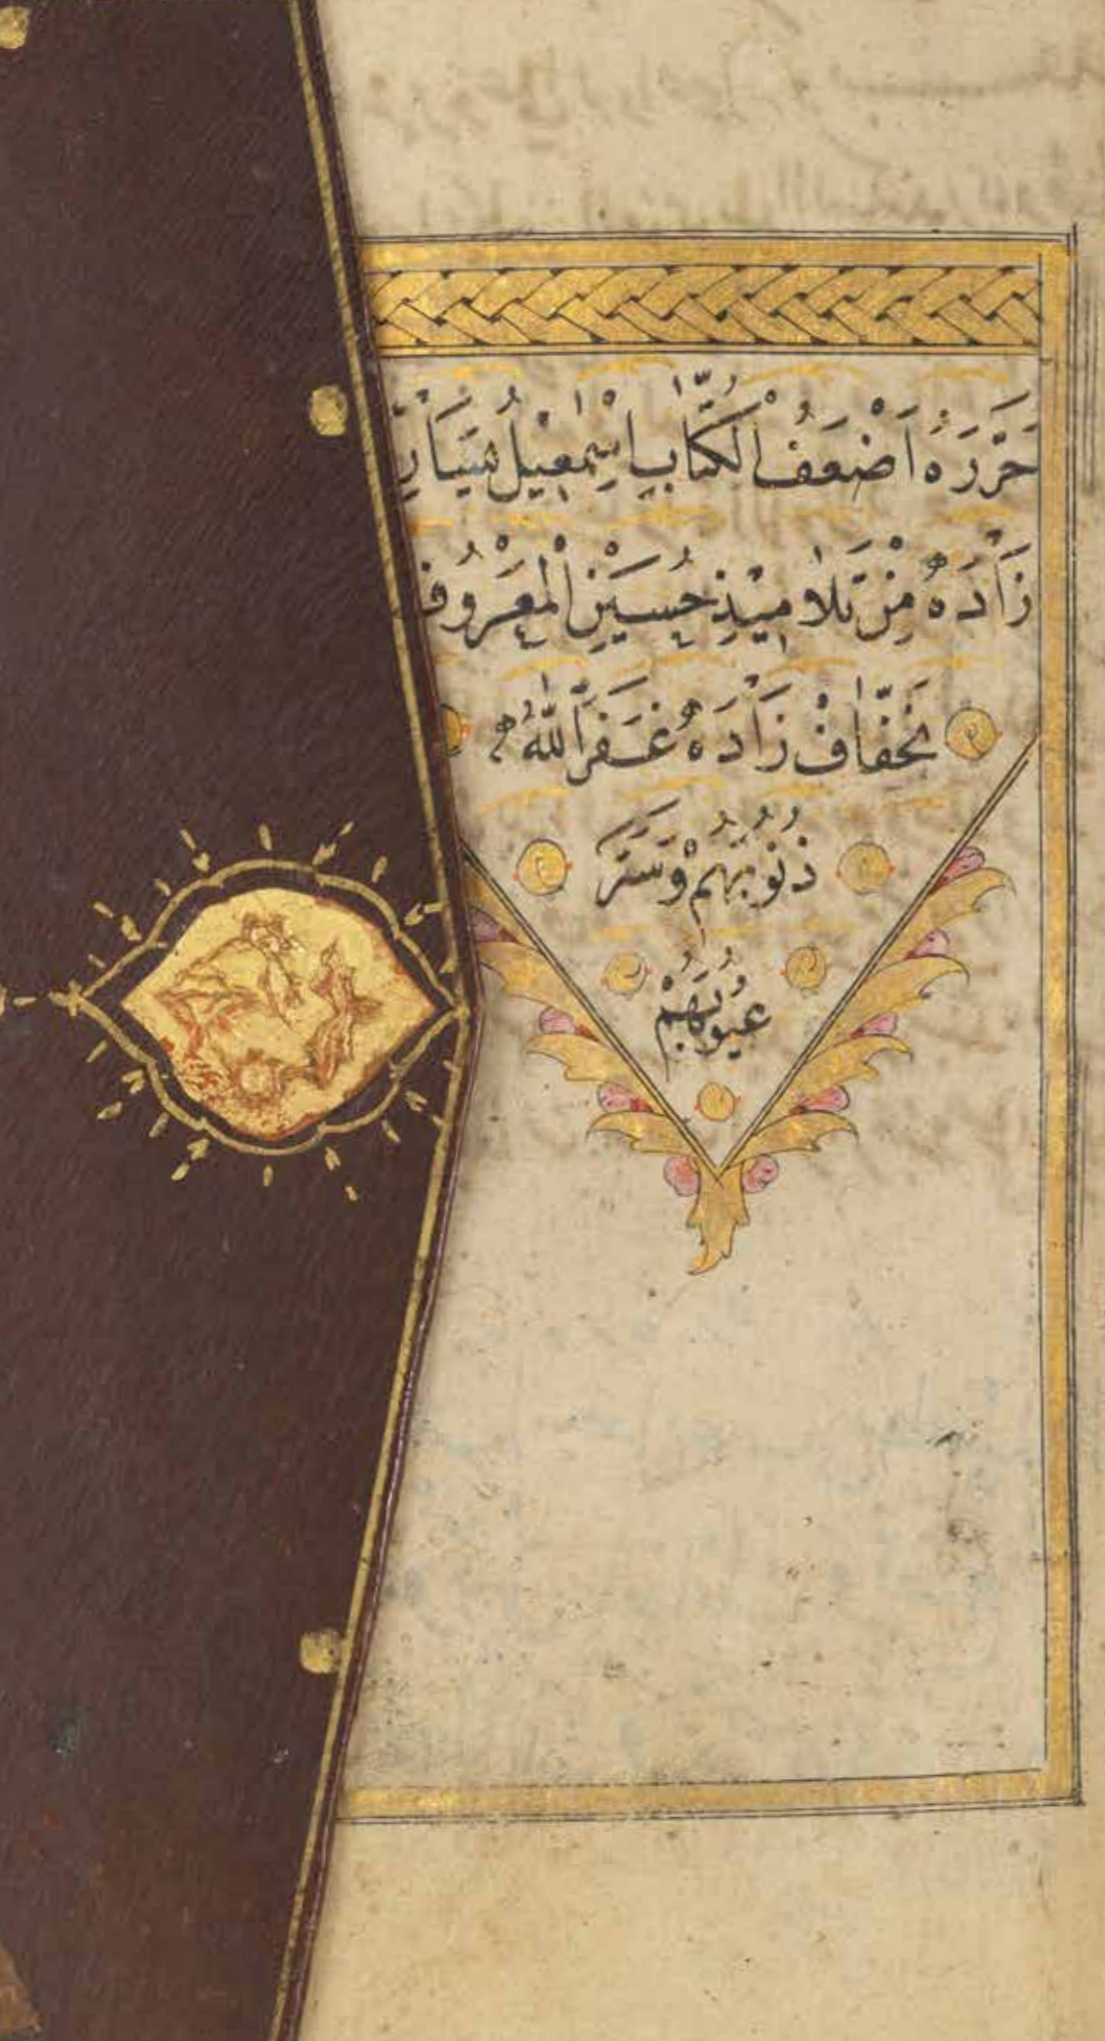 حَرَّرَهُ اَضْعَفُ الْكُتَّابِ اِسْمٰعِيْلُ
زَادَهْ مِنْ تَلَامِيْذِ حُسَيْنِ الْمَعْرُوفْ
بَخَفَّافْ زَادَهْ غَفَرَ اللّٰهُ
ذُنُوُبَهُمْ وَسَتَرَ
عُيُوُبَهُمْ